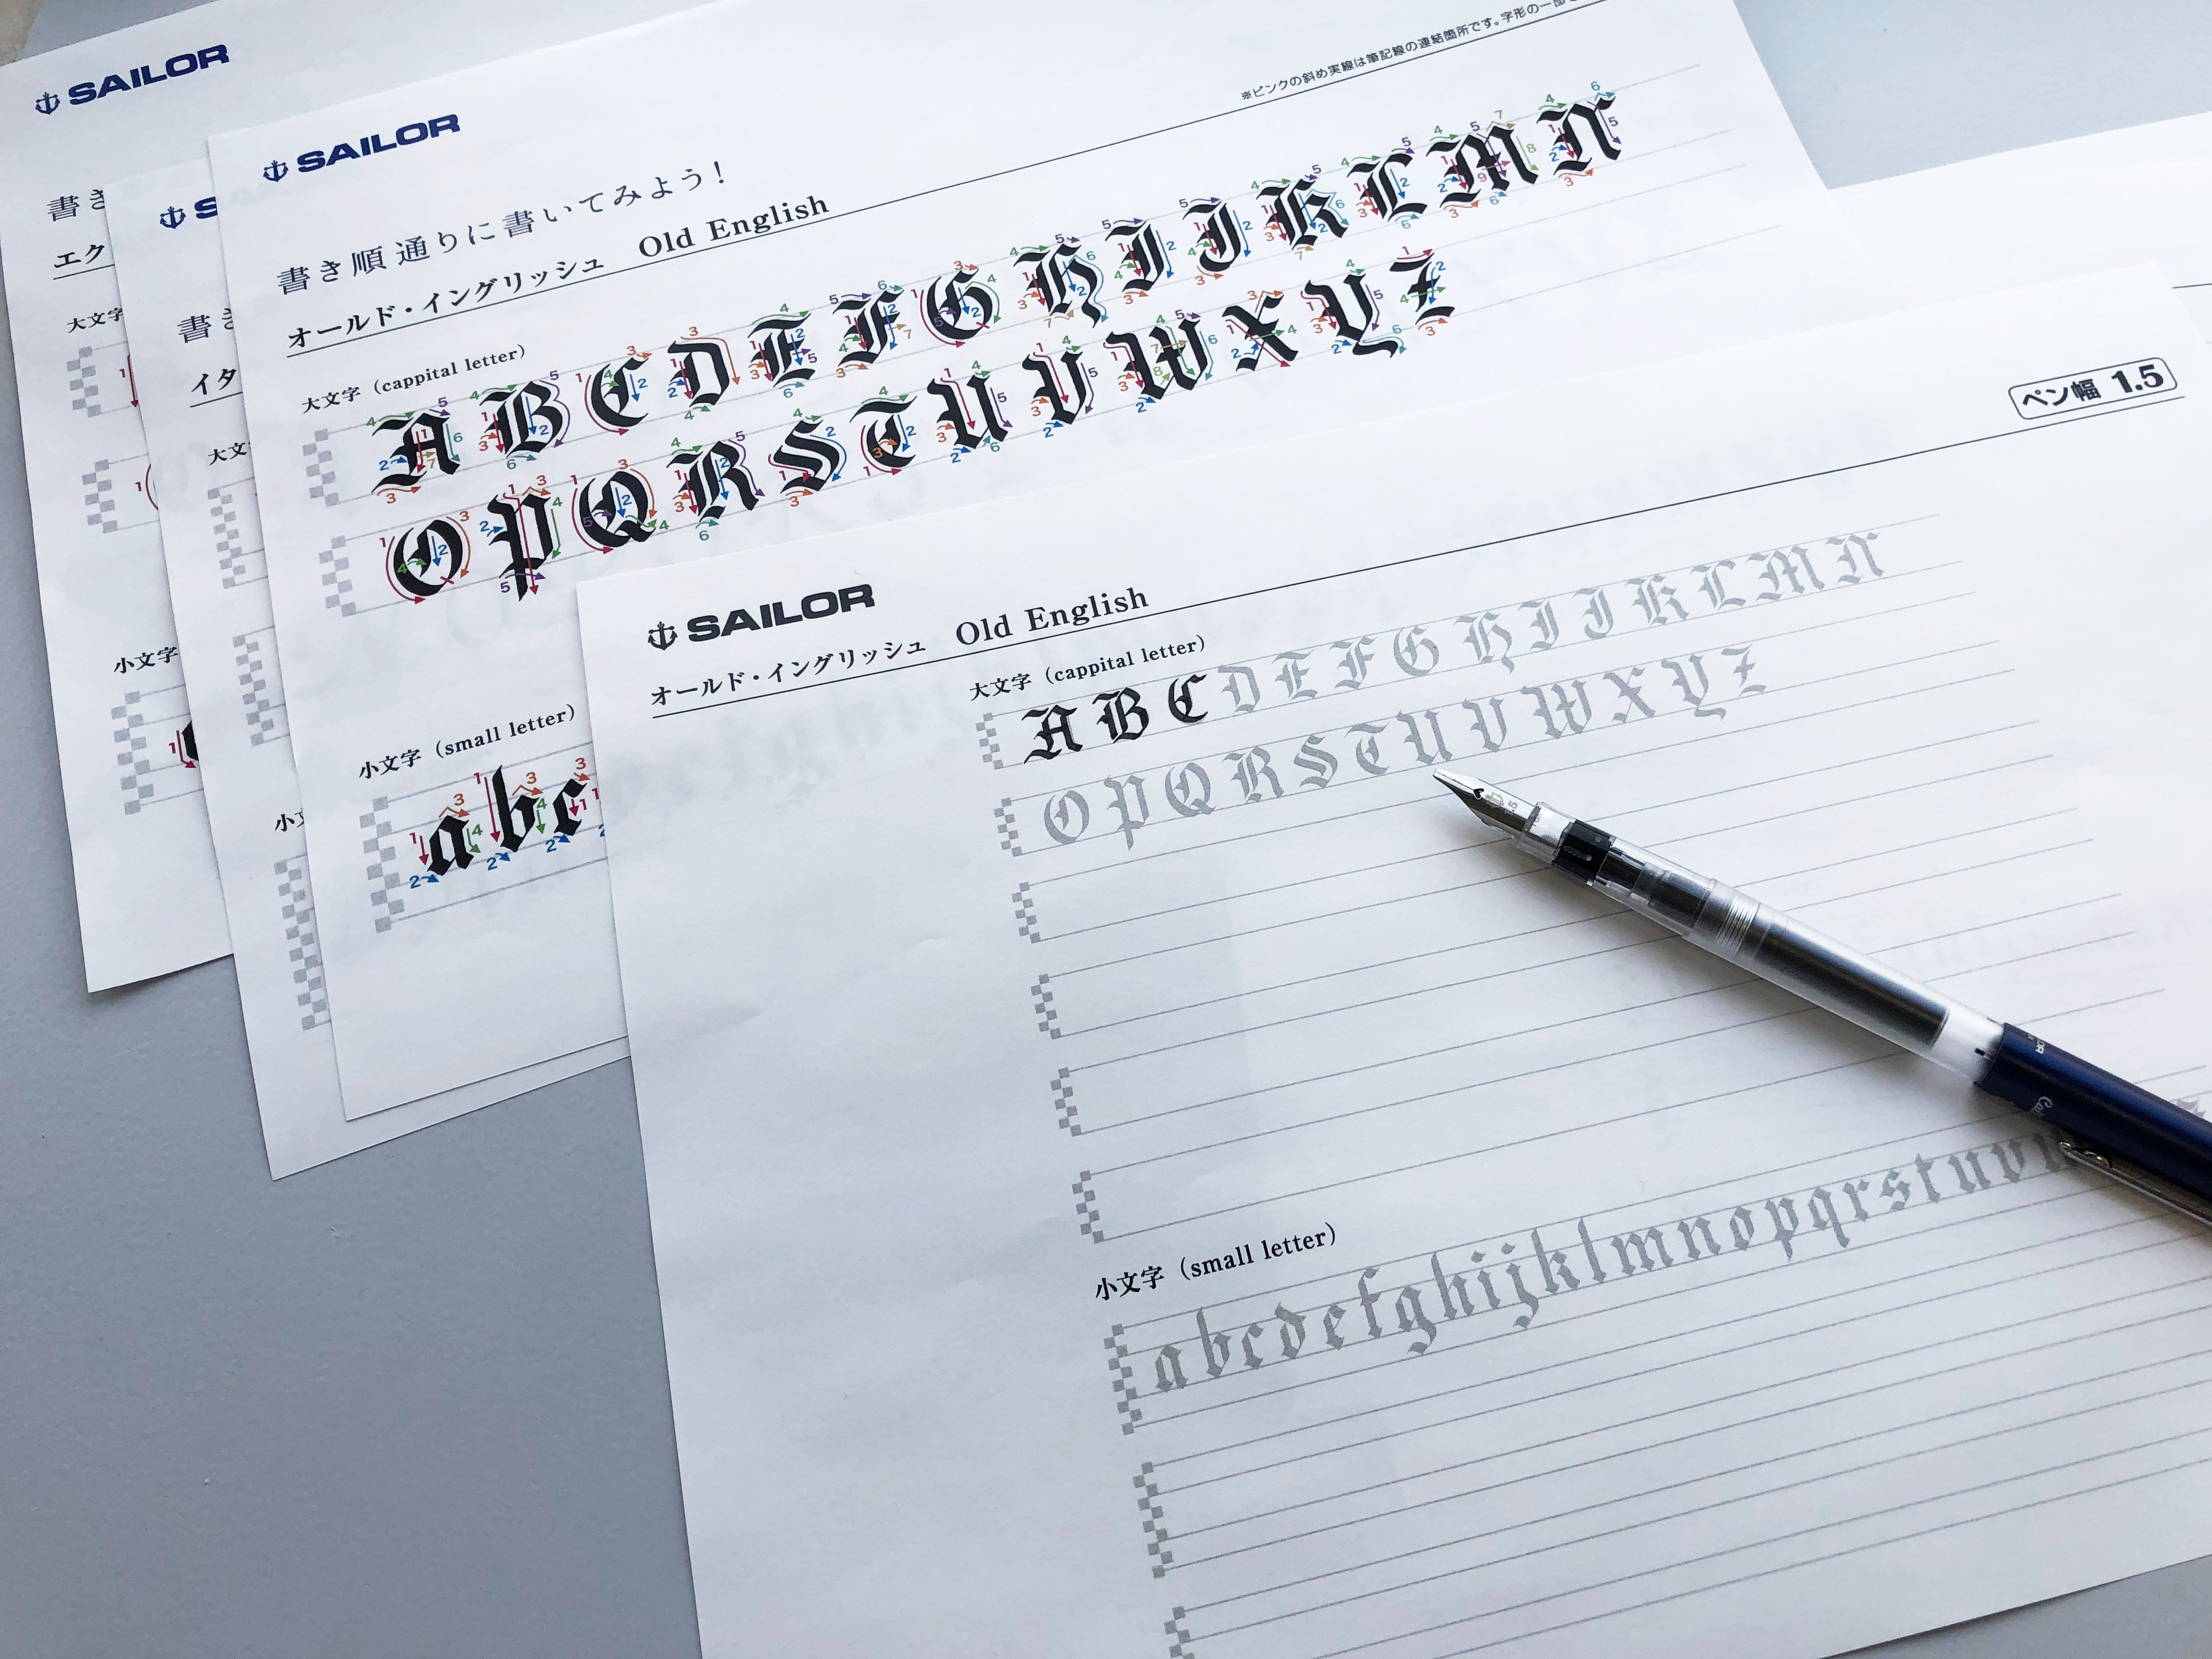 SAILOR
書き
エク
大文字
小文字
書き
イタ
大文
小
SAILOR
※ピンクの斜め実線は筆記線の連結箇所です。字形の一部
書き順通りに書いてみよう!
オールド・イングリッシュ Old English
大文字 (cappital letter)
A B C D E F G H I J K L M N
O P Q R S T U V W X Y Z
小文字 (small letter)
a b c
SAILOR
ペン幅 1.5
オールド・イングリッシュ Old English
大文字 (cappital letter)
A B C D E F G H I J K L M N
O P Q R S T U V W X Y Z
小文字 (small letter)
a b c d e f g h i j k l m n o p q r s t u v w